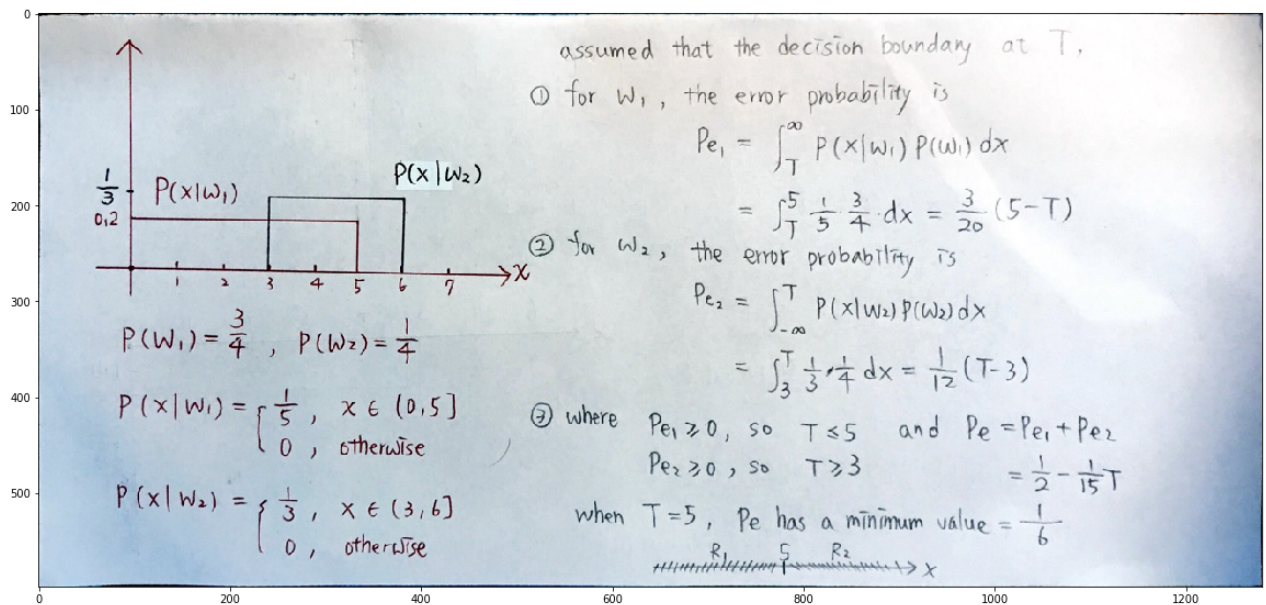 0
100
200
300
400
500
0 200 400 600 800 1000 1200
1/3
P(x|w₁)
P(x|w₂)
0.2
1 2 3 4 5 6 7 x
P(w₁) = 3/4 , P(w₂) = 1/4
P(x|w₁) = { 1/5 , x ∈ (0,5]
0 , otherwise
P(x|w₂) = { 1/3 , x ∈ (3,6]
0 , otherwise
assumed that the decision boundary at T.
① for w₁ , the error probability is
Pe₁ = ∫_T^∞ P(x|w₁) P(w₁) dx
= ∫_T^5 1/5 · 3/4 · dx = 3/20 (5-T)
② for w₂ , the error probability is
Pe₂ = ∫_{-∞}^T P(x|w₂) P(w₂) dx
= ∫_3^T 1/3 · 1/4 dx = 1/12 (T-3)
③ where Pe₁ ≥ 0, so T ≤ 5 and Pe = Pe₁ + Pe₂
Pe₂ ≥ 0, so T ≥ 3 = 1/2 - 1/15 T
when T = 5, Pe has a minimum value = 1/6
R₁ 5 R₂ x